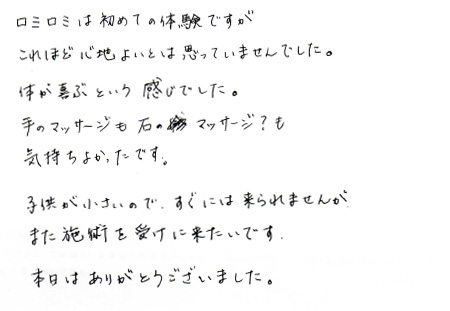 ロミロミは初めての体験ですが
これほど心地よいとは思っていませんでした。
体が喜ぶという感じでした。
手のマッサージも石のマッサージ?も
気持ちよかったです。
子供が小さいので、すぐには来られませんが
また施術を受けに来たいです。
本日はありがとうございました。